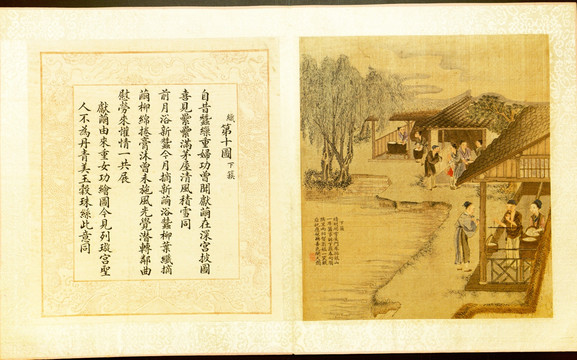 織 第十圖 下簇
自昔蠶繰重婦功曾聞獻繭在深宮披圖
喜見纍纍滿茅屋清風積雪同
前月浴新蠶今月摘新繭浴蠶柳葉纖摘
繭柳綿捲膏沐曾未施風光覺潛轉鄰曲
慰勞來懽情一共展
獻繭由來重女功繪圖今見列璇宮聖
人不為丹青美玉穀珠絲此意同
下簇